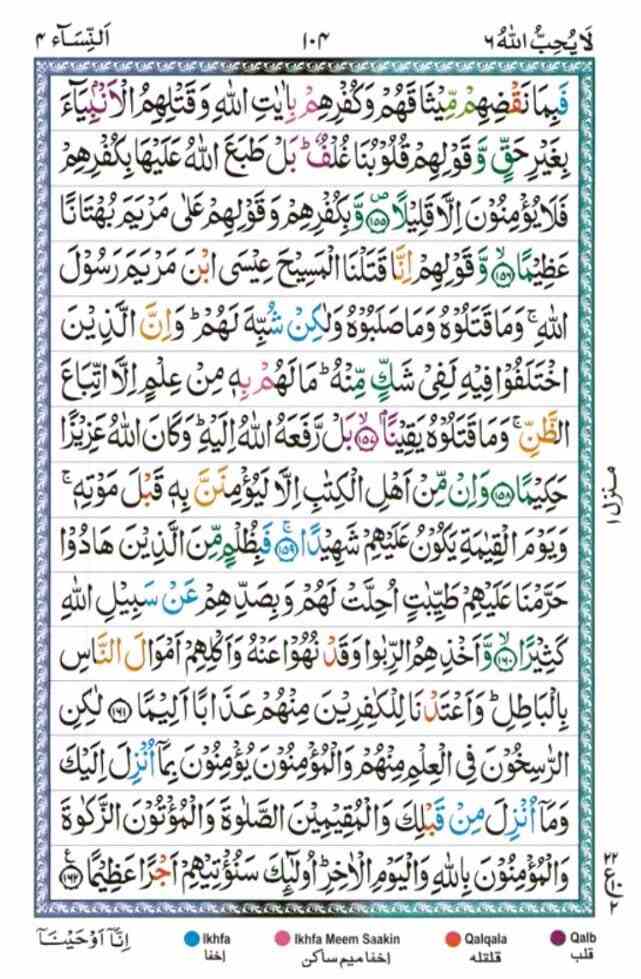 اَلنِّسَآء ۴ ۱۰۴ لَا یُحِبُّ اللّٰهُ ۶
فَبِمَا نَقْضِهِمْ مِّیْثَاقَهُمْ وَ كُفْرِهِمْ بِاٰیٰتِ اللّٰهِ وَ قَتْلِهِمُ الْاَنْۢبِیَآءَ
بِغَیْرِ حَقٍّ وَّ قَوْلِهِمْ قُلُوْبُنَا غُلْفٌؕ بَلْ طَبَعَ اللّٰهُ عَلَیْهَا بِكُفْرِهِمْ
فَلَا یُؤْمِنُوْنَ اِلَّا قَلِیْلًا۪۝۱۵۵ وَّ بِكُفْرِهِمْ وَ قَوْلِهِمْ عَلٰى مَرْیَمَ بُهْتَانًا
عَظِیْمًاۙ۝۱۵۶ وَّ قَوْلِهِمْ اِنَّا قَتَلْنَا الْمَسِیْحَ عِیْسَى ابْنَ مَرْیَمَ رَسُوْلَ
اللّٰهِۚ وَ مَا قَتَلُوْهُ وَ مَا صَلَبُوْهُ وَ لٰكِنْ شُبِّهَ لَهُمْؕ وَ اِنَّ الَّذِیْنَ
اخْتَلَفُوْا فِیْهِ لَفِیْ شَكٍّ مِّنْهُؕ مَا لَهُمْ بِهٖ مِنْ عِلْمٍ اِلَّا اتِّبَاعَ
الظَّنِّۚ وَ مَا قَتَلُوْهُ یَقِیْنًۢاۙ۝۱۵۷ بَلْ رَّفَعَهُ اللّٰهُ اِلَیْهِؕ وَ كَانَ اللّٰهُ عَزِیْزًا
حَكِیْمًا۝۱۵۸ وَ اِنْ مِّنْ اَهْلِ الْكِتٰبِ اِلَّا لَیُؤْمِنَنَّ بِهٖ قَبْلَ مَوْتِهٖۚ
وَ یَوْمَ الْقِیٰمَةِ یَكُوْنُ عَلَیْهِمْ شَهِیْدًاۚ۝۱۵۹ فَبِظُلْمٍ مِّنَ الَّذِیْنَ هَادُوْا
حَرَّمْنَا عَلَیْهِمْ طَیِّبٰتٍ اُحِلَّتْ لَهُمْ وَ بِصَدِّهِمْ عَنْ سَبِیْلِ اللّٰهِ
كَثِیْرًاۙ۝۱۶۰ وَّ اَخْذِهِمُ الرِّبٰوا وَ قَدْ نُهُوْا عَنْهُ وَ اَكْلِهِمْ اَمْوَالَ النَّاسِ
بِالْبَاطِلِؕ وَ اَعْتَدْنَا لِلْكٰفِرِیْنَ مِنْهُمْ عَذَابًا اَلِیْمًا۝۱۶۱ لٰكِنِ
الرّٰسِخُوْنَ فِی الْعِلْمِ مِنْهُمْ وَ الْمُؤْمِنُوْنَ یُؤْمِنُوْنَ بِمَاۤ اُنْزِلَ اِلَیْكَ
وَ مَاۤ اُنْزِلَ مِنْ قَبْلِكَ وَ الْمُقِیْمِیْنَ الصَّلٰوةَ وَ الْمُؤْتُوْنَ الزَّكٰوةَ
وَ الْمُؤْمِنُوْنَ بِاللّٰهِ وَ الْیَوْمِ الْاٰخِرِؕ اُولٰٓىِٕكَ سَنُؤْتِیْهِمْ اَجْرًا عَظِیْمًا۠۝۱۶۲
منزل ۱
۲۲ ع ۱۰ ۲
اِنَّاۤ اَوْحَیْنَاۤ
Ikhfa Ikhfa Meem Saakin Qalqala Qalb
اخفا اخفا میم ساکن قلقله قلب